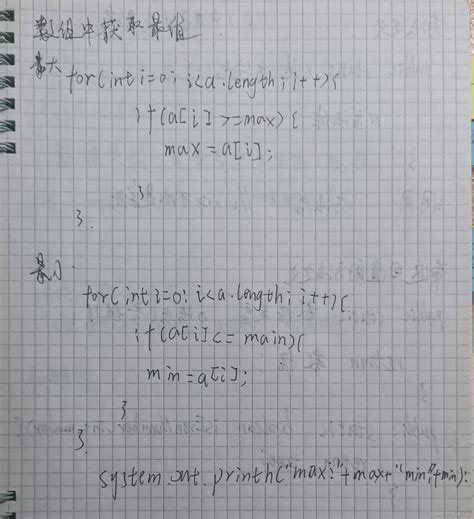 数组中获取最值
最大
for(int i=0; i<a.length; i++){
if(a[i]>=max){
max=a[i];
}
}.
最小:
for(int i=0; i<a.length; i++){
if(a[i]<=main){
min=a[i];
}
}.
system.out.println("max:"+max+"min:"+min);